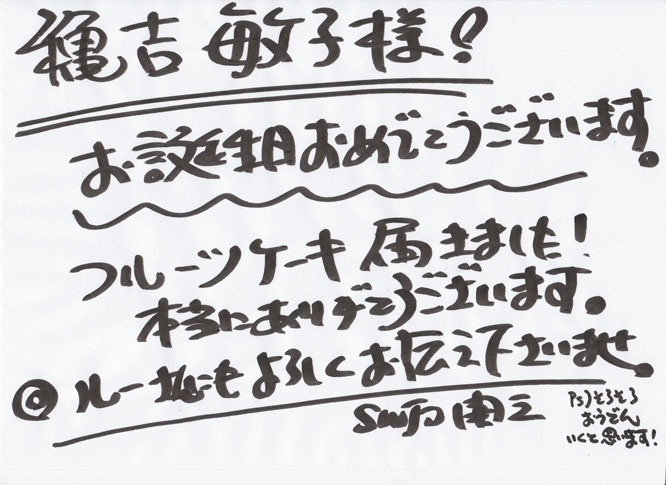 吉 敏子様!
お誕生日おめでとうございます。
フルーツケーキ届きました!
本当にありがとうございます。
ルー
もよろしくお伝え下さいませ。
Ps)そろそろ
おうどん
いくと思います!